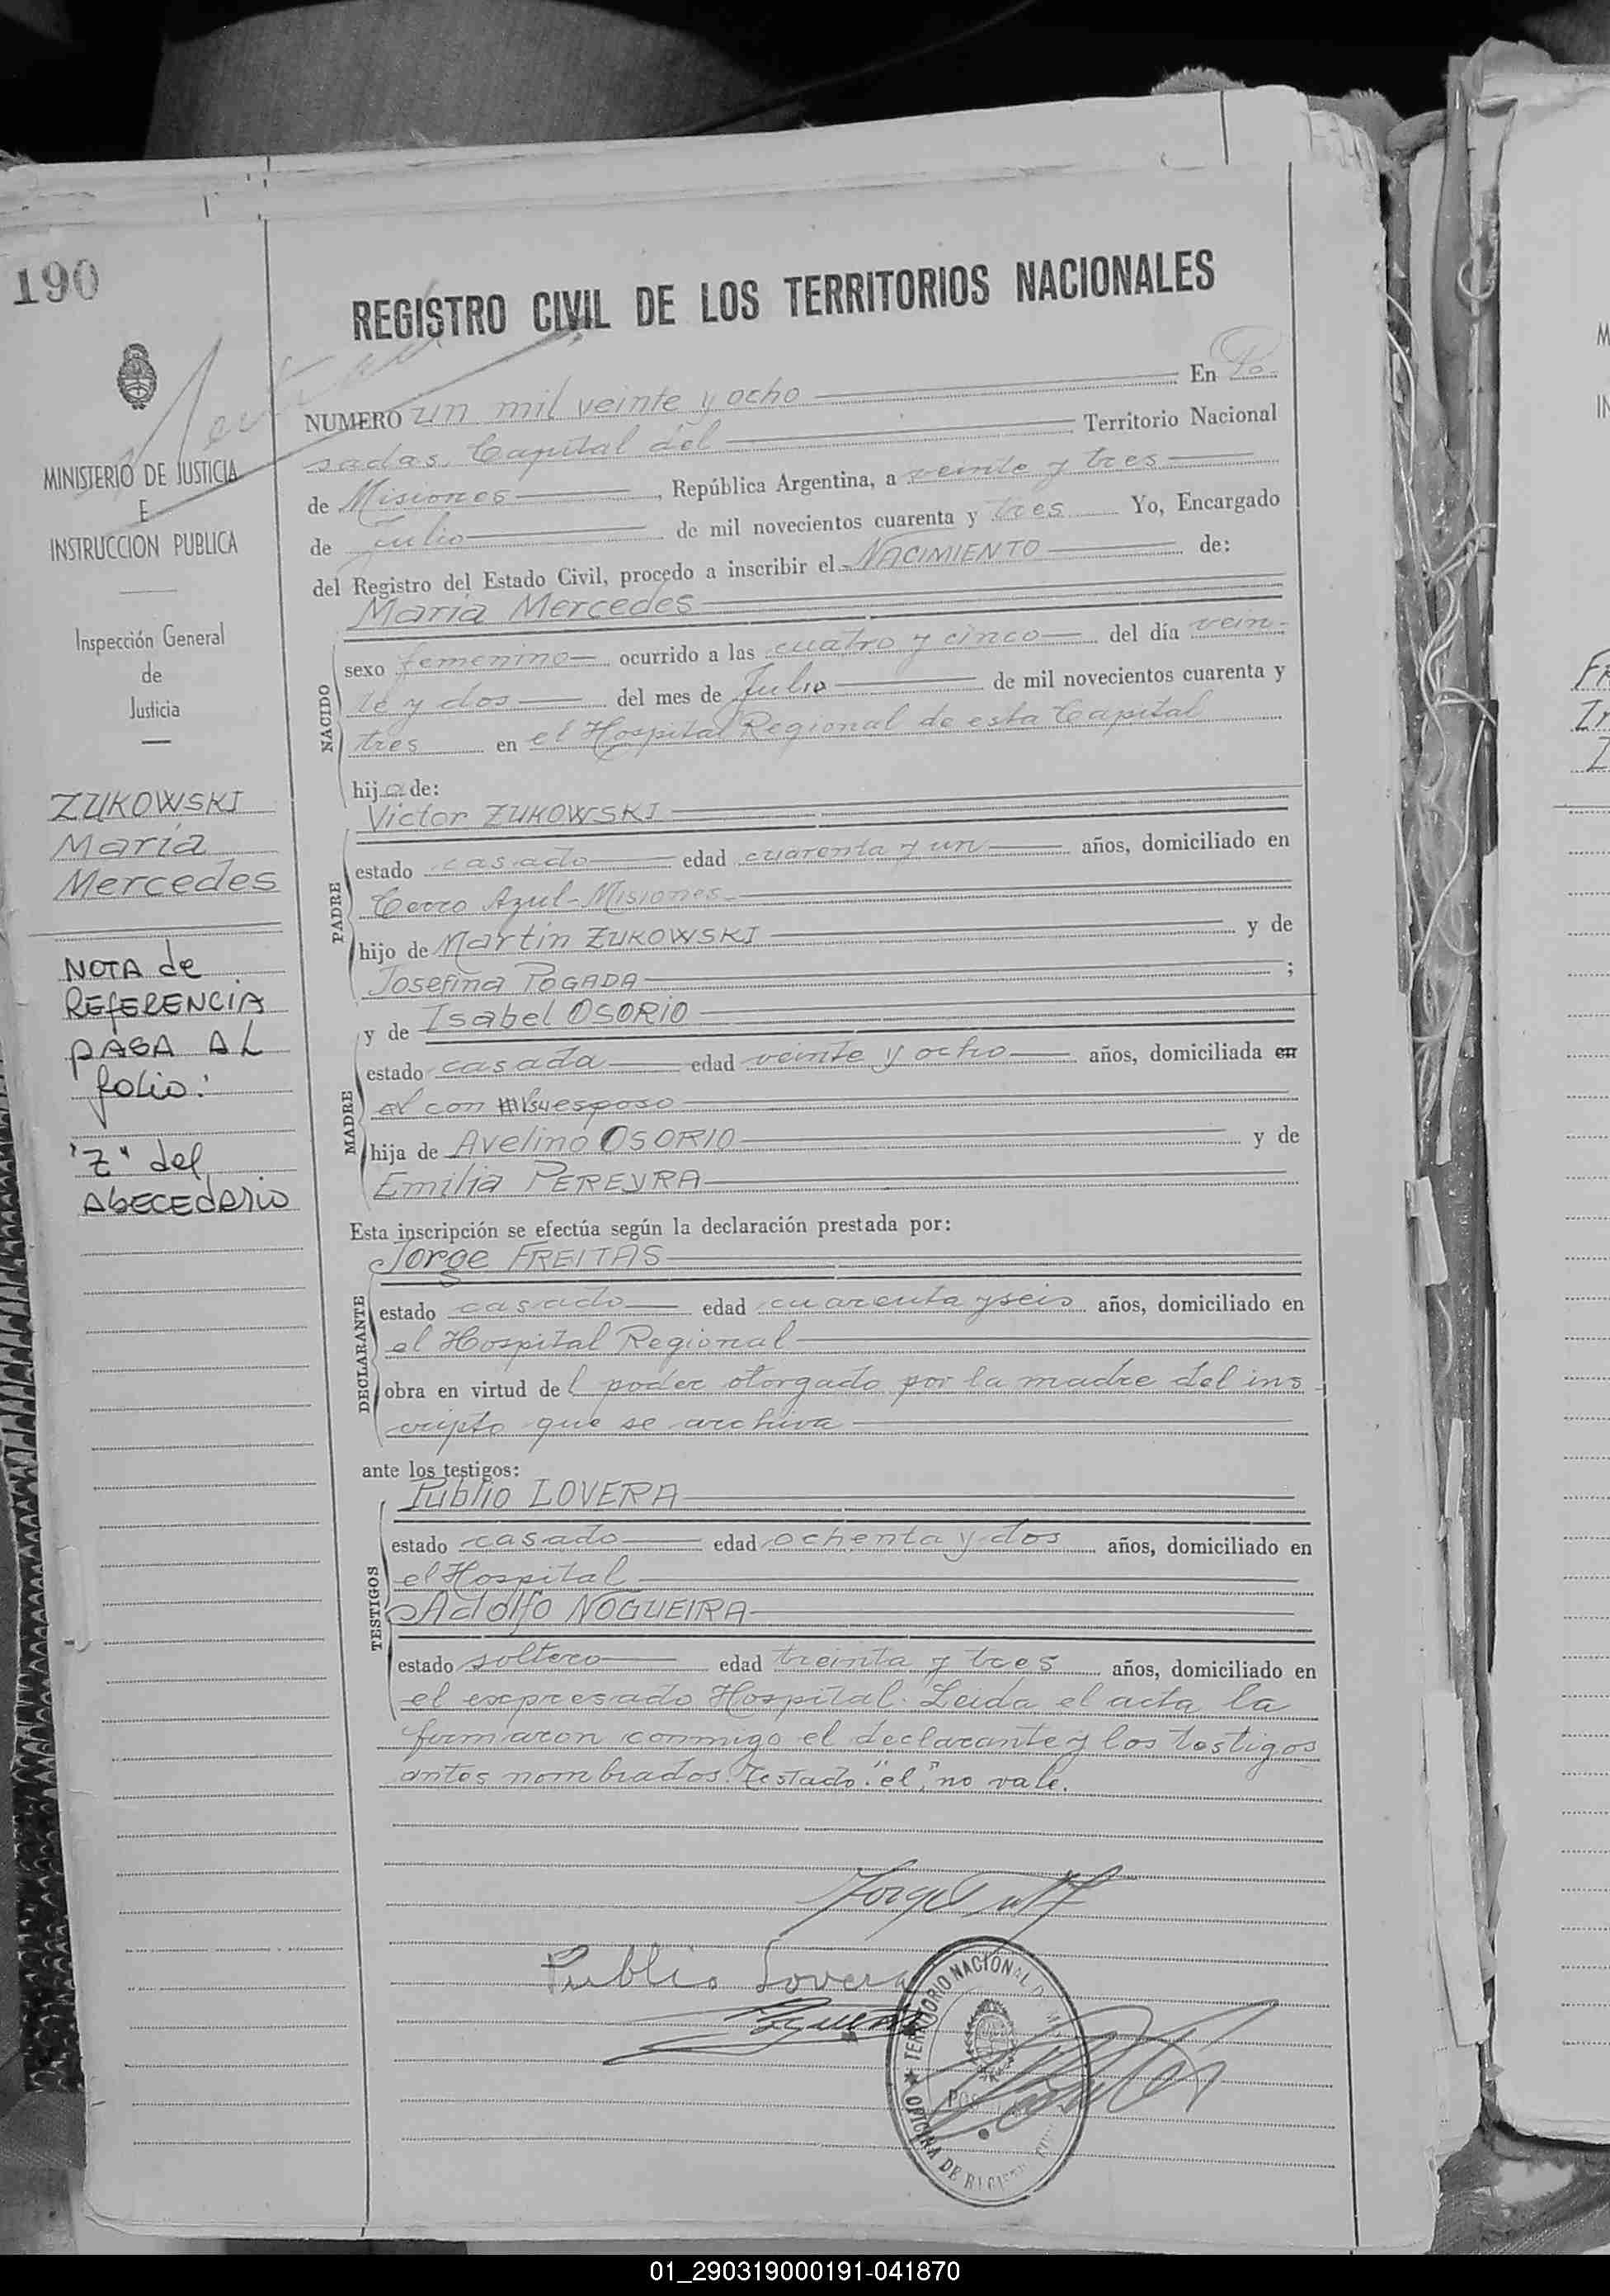 190
MINISTERIO DE JUSTICIA
E
INSTRUCCION PUBLICA
Inspección General
de
Justicia
ZUKOWSKI
María
Mercedes
NOTA de
REFERENCIA
PASA AL
folio:
"Z" del
ABECEDARIO
REGISTRO CIVIL DE LOS TERRITORIOS NACIONALES
NUMERO un mil veinte y ocho En Po-
sadas, Capital del Territorio Nacional
de Misiones, República Argentina, a veinte y tres
de Julio de mil novecientos cuarenta y tres Yo, Encargado
del Registro del Estado Civil, procedo a inscribir el NACIMIENTO de:
María Mercedes
NACIDO
sexo femenino ocurrido a las cuatro y cinco del día vein-
te y dos del mes de Julio de mil novecientos cuarenta y
tres en el Hospital Regional de esta Capital
hija de:
Victor ZUKOWSKI
PADRE
estado casado edad cuarenta y un años, domiciliado en
Cerro Azul-Misiones
hijo de Martín ZUKOWSKI y de
Josefina POGADA;
y de Isabel OSORIO
MADRE
estado casada edad veinte y ocho años, domiciliada en
el con su esposo
hija de Avelino OSORIO y de
Emilia PEREYRA
Esta inscripción se efectúa según la declaración prestada por:
Jorge FREITAS
DECLARANTE
estado casado edad cuarenta y seis años, domiciliado en
el Hospital Regional
obra en virtud del poder otorgado por la madre del ins-
cripto que se archiva
ante los testigos:
Publio LOVERA
TESTIGOS
estado casado edad ochenta y dos años, domiciliado en
el Hospital
Adolfo NOGUEIRA
estado soltero edad treinta y tres años, domiciliado en
el expresado Hospital. Leida el acta la
firmaron conmigo el declarante y los testigos
antes nombrados. Testado: "el", no vale.
Publio Lovera
TERRITORIO NACIONAL
OFICINA DE REGIS
01_290319000191-041870